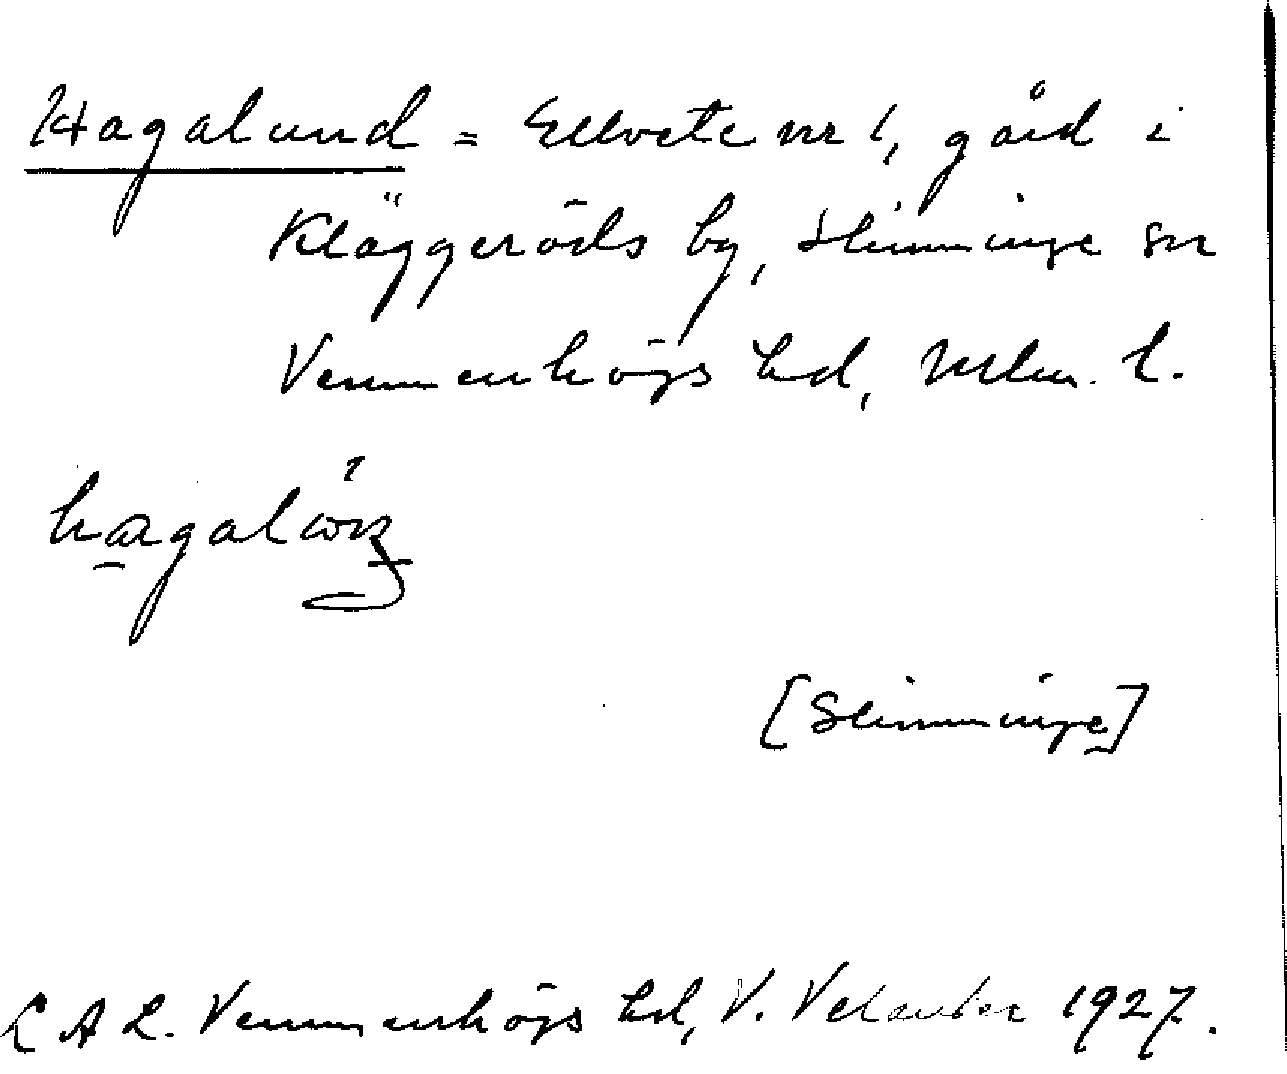 Hagalund = Ellvete nr 1, gård i
Kläggeröds by, Slimminge sn
Vemmenhögs hd, Mlm. l.
[Slimminge]
L A L. Vemmenhögs hd, V. Velander 1927.